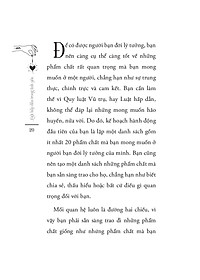 Để có được người bạn đời lý tưởng, bạn
nên càng cụ thể càng tốt về những
phẩm chất rất quan trọng mà bạn mong
muốn ở một người, chẳng hạn như sự trung
thực, chính trực và cam kết. Bạn cần làm
thế vì Quy luật Vũ trụ, hay Luật hấp dẫn,
không thể đáp lại những mong muốn hão
huyền, nửa vời. Do đó, kế hoạch hành động
đầu tiên của bạn là lập một danh sách gồm
ít nhất 20 phẩm chất mà bạn mong muốn ở
người bạn đời lý tưởng của mình. Bạn cũng
nên tạo một danh sách những phẩm chất mà
bạn sẵn sàng trao cho họ, chẳng hạn như biết
chia sẻ, thấu hiểu hoặc bất cứ điều gì quan
trọng đối với bạn.
Mối quan hệ luôn là đường hai chiều, vì
vậy bạn phải sẵn sàng trao đi những phẩm
chất giống như những phẩm chất mà bạn
20